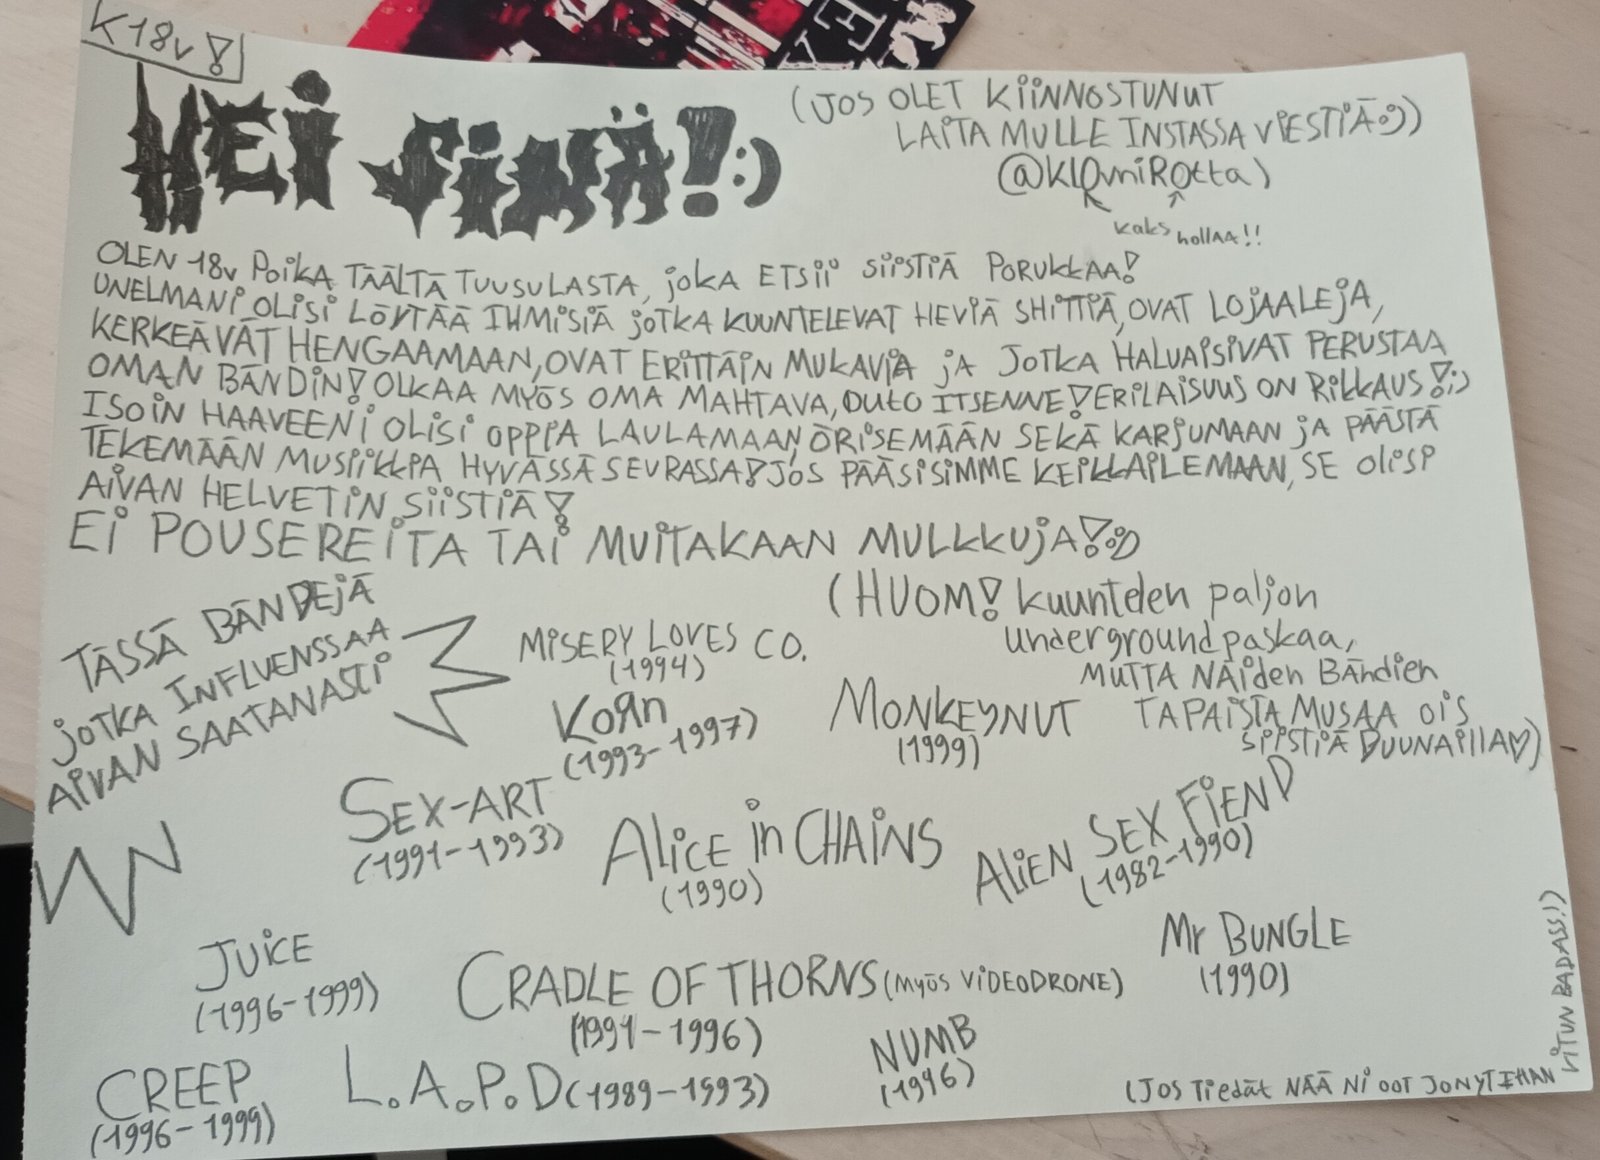 K18v!
HEI SINÄ! :)
(JOS OLET KIINNOSTUNUT
LAITA MULLE INSTASSA VIESTIÄ:))
@KLOvniROtta)
kaks hollAA!!
OLEN 18v POIKA TÄÄLTÄ TUUSULASTA, joKA ETSII SIISTIÄ PORUKKAA!
UNELMANI OLISI LÖYTÄÄ IHMISIÄ jOTKA KUUNTELEVAT HEVIÄ SHITTIÄ, OVAT LOJAALEJA,
KERKEÄVÄT HENGAAMAAN, OVAT ERITTÄIN MUKAVIA jA JOTKA HALUAISIVAT PERUSTAA
OMAN BÄNDIN! OLKAA MYÖS OMA MAHTAVA, OUTO ITSENNE! ERILAISUUS ON RIKKAUS!;)
ISOIN HAAVEENI OLISI OPPIA LAULAMAAN, ÖRISEMÄÄN SEKÄ KARJUMAAN jA PÄÄSTÄ
TEKEMÄÄN MUSIIKKIA HYVÄSSÄ SEURASSA! JOS PÄÄSISIMME KEIKKAILEMAAN, SE OlISI
AIVAN HELVETIN SIISTIÄ!
EI POUSEREITA TAI MUITAKAAN MULKKUJA!:)
TÄSSÄ BÄNDEJÄ
jOTKA INFLUENSSAA
AIVAN SAATANASTI
(HUOM! kuuntelen paljon
undergroundpaskaa,
MUTTA NÄiden BÄndien
TAPAISTA MUSAA OIS
SIISTIÄ DUUNAILLA♡)
MISERY LOVES CO.
(1994)
KoЯn
(1993-1997)
MONKEYNUT
(1999)
SEX-ART
(1991-1993)
ALICE in CHAINS
(1990)
ALIEN SEX FIEND
(1982-1990)
JUICE
(1996-1999)
CRADLE OF THORNS (MYÖS VIDEODRONE)
(1991-1996)
Mr BUNGLE
(1990)
CREEP
(1996-1999)
L.A.P.D (1989-1993)
NUMB
(1996)
(JOS TIEdät NÄÄ NI OOT JO NYT IHAN VITUN BADASS!)